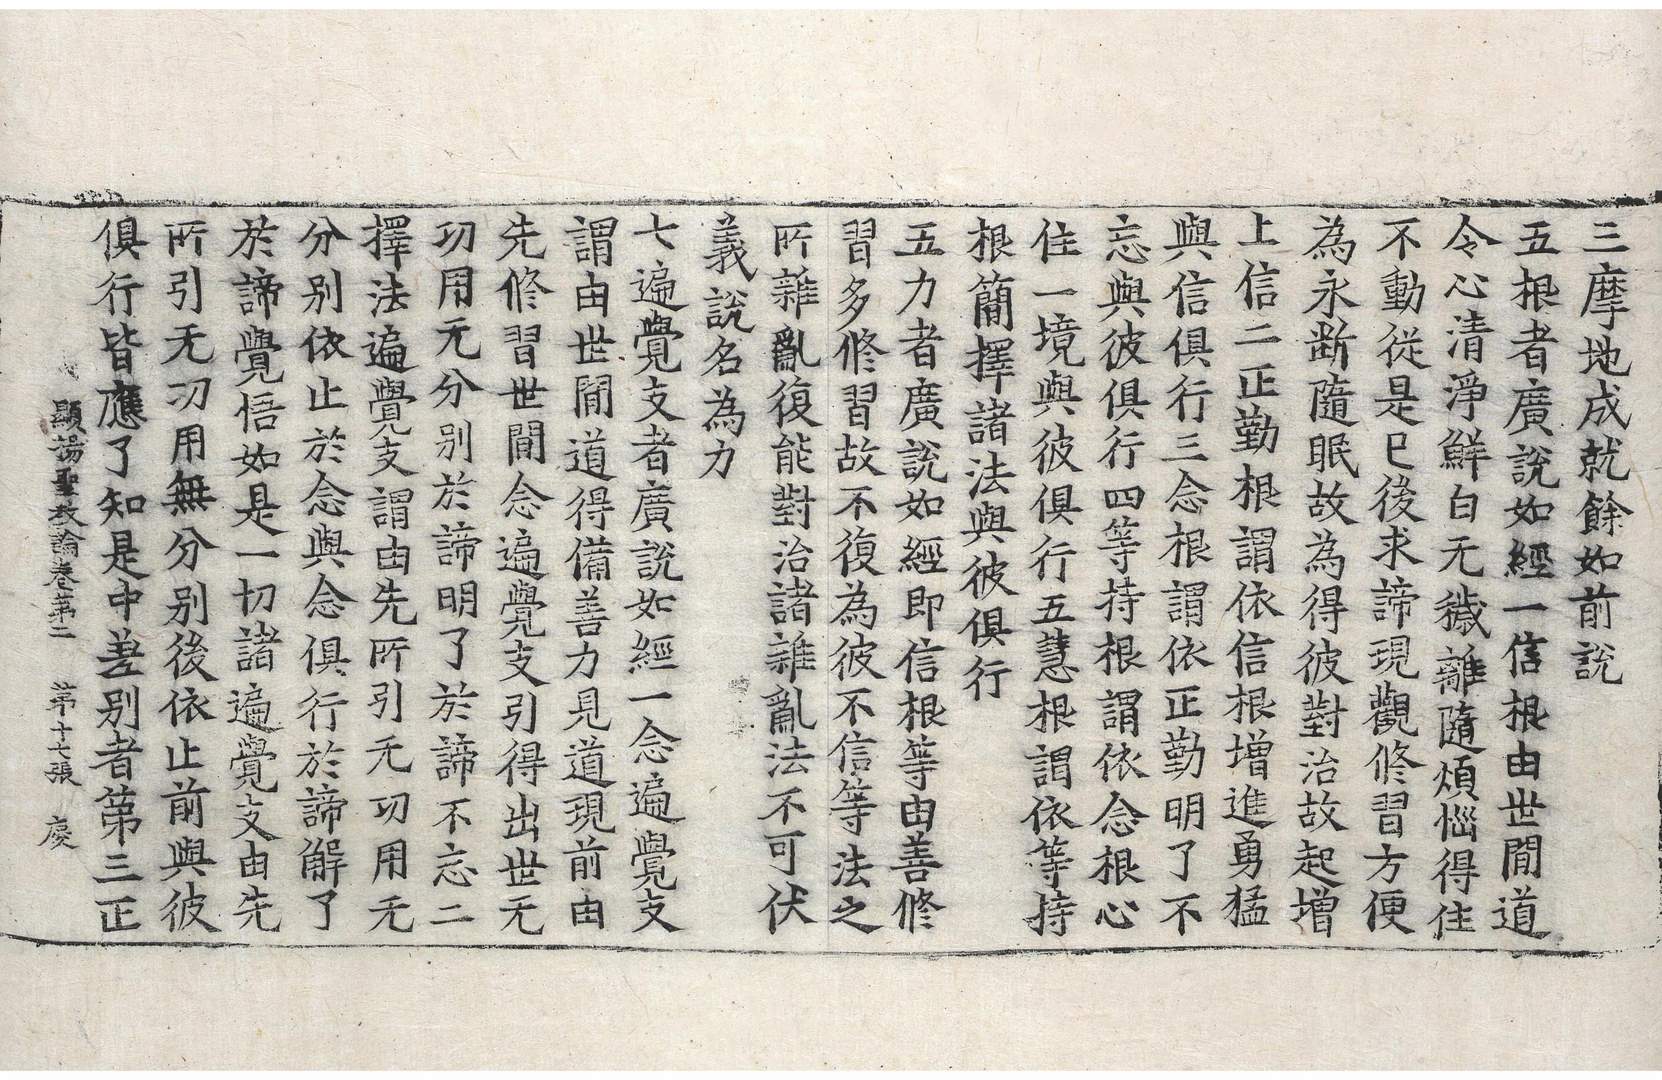 三摩地成就餘如前說
五根者廣說如經一信根由世間道
令心清淨鮮白无穢離隨煩惱得住
不動從是已後求諦現觀修習方便
為永斷隨眠故為得彼對治故起增
上信二正勤根謂依信根增進勇猛
與信俱行三念根謂依正勤明了不
忘與彼俱行四等持根謂依念根心
住一境與彼俱行五慧根謂依等持
根簡擇諸法與彼俱行
五力者廣說如經即信根等由善修
習多修習故不復為彼不信等法之
所雜亂復能對治諸雜亂法不可伏
義說名為力
七遍覺支者廣說如經一念遍覺支
謂由世間道得備善力見道現前由
先修習世間念遍覺支引得出世无
功用无分別於諦明了於諦不忘二
擇法遍覺支謂由先所引无功用无
分別依止於念與念俱行於諦解了
於諦覺悟如是一切諸遍覺支由先
所引无功用無分別後依止前與彼
俱行皆應了知是中差別者第三正
顯揚聖教論卷第二 第十七張 慶